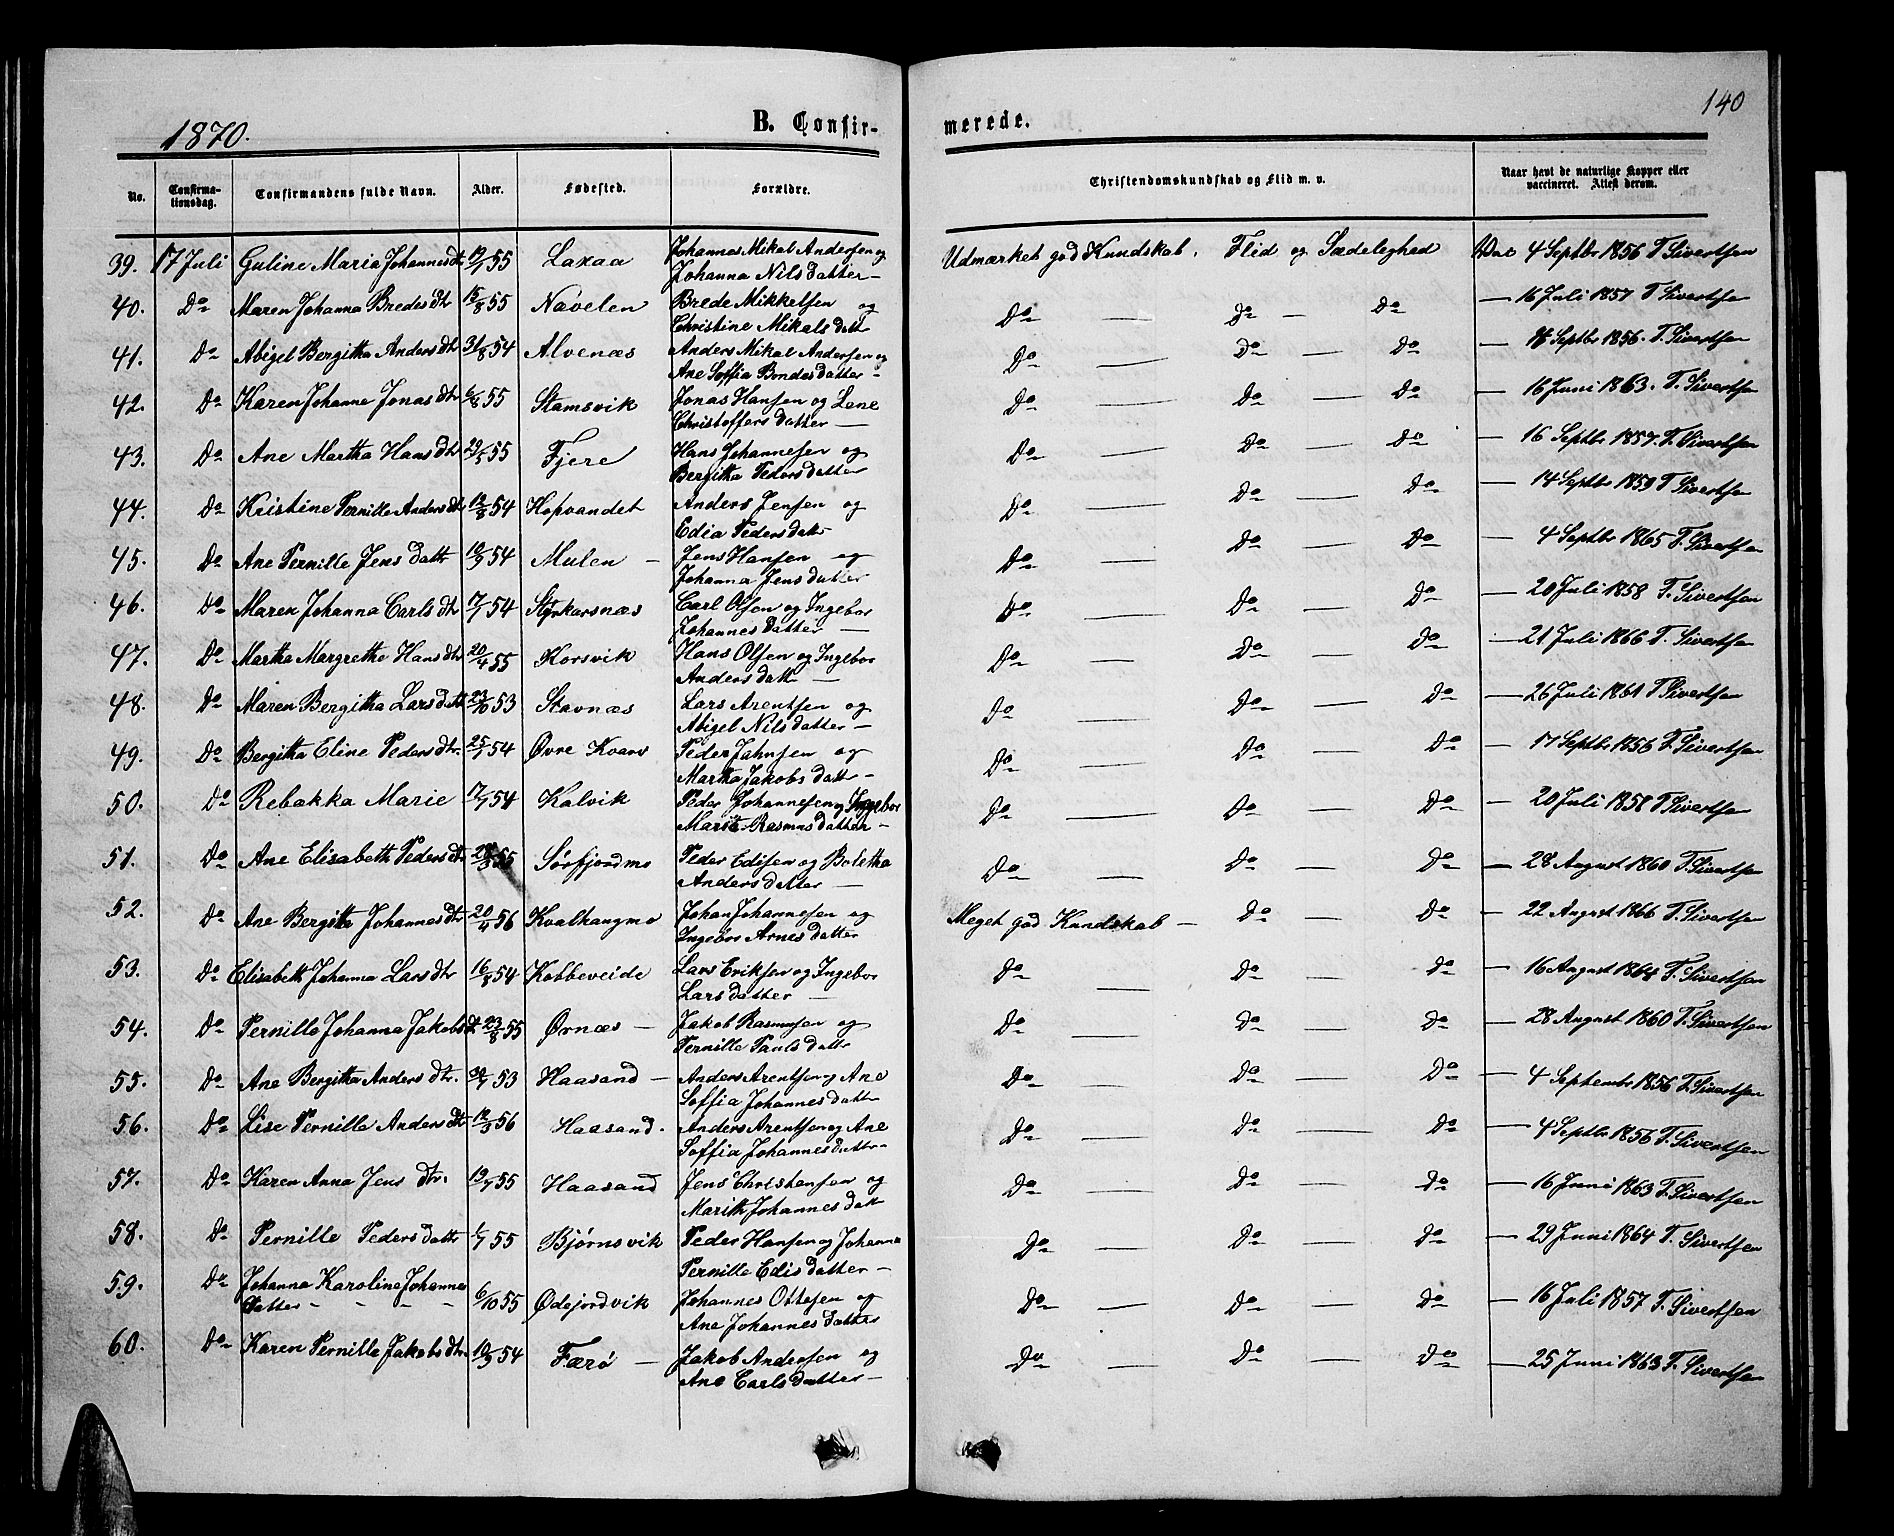 140
1870.
B. Confir-
merede.
No.
Confirma-
tionsdag.
Confirmandens fulde Navn.
Alder.
Fødested.
Forældre.
Christendomskundskab og Flid m. v.
Naar havt de naturlige Kopper eller
vaccineret. Attest derom.
39. 17 Juli Guline Maria Johannesdt 55 Laxaa Johannes Mikal Andersen og
Johanna Nilsdatter — Udmærket god Kundskab. Flid og Sædelighed Vac 4 Septbr 1856 T. Sivertsen
40. Do Maren Johanna Bredesdtr 15/8 55 Navelen Brede Mikkelsen og
Christine Mikalsdatt Do — Do — Do — 16 Juli 1857 T. Sivertsen
41. Do Abigel Bergitha Andersdtr 31/8 54 Alvenæs Anders Mikal Andersen og
Ane Soffia Bondesdatter - Do — Do — Do — Septbr 1856. T. Sivertsen
42. Do Karen Johanna Jonasdtr 6/8 55 Stamsvik Jonas Hansen og Lene
Christoffersdatter — Do — Do — Do — 16 Juni 1863. T. Sivertsen
43. Do Ane Martha Hansdtr 55 Fjere Hans Johannesen og
Bergitha Pedersdatter Do — Do — Do — 16 Septbr 1857. T. Sivertsen
44. Do Kristine Pernille Andersdtr 54 Hopvandet Anders Jensen og
Edia Pedersdatr Do — Do — Do — 14 Septbr 1859 T. Sivertsen
45. Do Ane Pernille Jensdatt 54 Mulen — Jens Hansen og
Johanna Jensdatter Do — Do — Do — 4 Septbr 1865 T. Sivertsen
46. Do Maren Johanna Carlsdtr 54 Styrkarsnæs Carl Olsen og Ingebor
Johannesdatter — Do — Do — Do — 20 Juli 1858 T. Sivertsen
47. Do Martha Margrethe Hansdtr 20/4 55 Korsvik Hans Olsen og Ingebor
Andersdatt — Do — Do — Do — 21 Juli 1866 T. Sivertsen
48. Do Maren Bergitha Larsdatt 23/10 53 Stavnæs Lars Arentsen og
Abigel Nilsdatter — Do — Do — Do — 26 Juli 1861 T. Sivertsen
49. Do Bergitha Eline Pedersdtr. 25/1 54 Øvre Kvarv Peder Jahnsen og
Martha Jakobsdatt — Do — Do — Do — 17 Septbr 1856 T. Sivertsen
50. Do Rebakka Marie 17/7 54 Kalvik Peder Johannesen og Ingebor
Marie Rasmusdatter — Do — Do — Do — 20 Juli 1858 T. Sivertsen
51. Do Ane Elisabeth Pedersdtr 55 Sørfjordmo Peder Edisen og Boletha
Andersdatter — Do — Do — Do — 28 August 1860 T. Sivertsen
52. Do Ane Bergitha Johannesdtr 20/4 56 Kvalhangmo Johan Johannesen og
Ingebor Arnesdatter Meget god Kundskab — Do — Do — 22 August 1866 T. Sivertsen
53. Do Elisabeth Johanna Larsdtr 16/8 54 Kobbeveide Lars Eriksen og Ingebor
Larsdatter — Do — Do — Do — 16 August 1868 T. Sivertsen
54. Do Pernille Johanna Jakobsdt 23/8 55 Ørnæs — Jakob Rasmusen og
Pernille Paulsdattr Do — Do — Do — 28 August 1860 T. Sivertsen
55. Do Ane Bergitha Andersdtr. 53 Haasand — Anders Arentsen og Ane
Soffia Johannesdatter Do — Do — Do — 4 September 1856 T. Sivertsen
56. Do Lise Pernille Andersdtr 56 Haasand. Anders Arentsen og Ane
Soffia Johannesdatter Do — Do — Do — 4 Septbr 1856 T. Sivertsen
57. Do Karen Anna Jensdtr. 55 Haasand Jens Christensen og
Marith Johannesdatt Do — Do — Do — 16 Juni 1863 T. Sivertsen
58. Do Pernille Pedersdattr 1/7 55 Bjørnsvik Peder Hansen og Johanna
Pernille Edisdatter — Do — Do — Do — 29 Juni 1864 T. Sivertsen
59. Do Johanna Karoline Johannes
datter - - - - 6/10 55 Ødejordvik Johannes Ottesen og
Ane Johannesdatter Do — Do — Do — 16 Juli 1857 T. Sivertsen
60. Do Karen Pernille Jakobsdtr. 54 Færø — Jakob Andersen og
Ane Carlsdatter — Do — Do — Do — 25 Juni 1863 T. Sivertsen